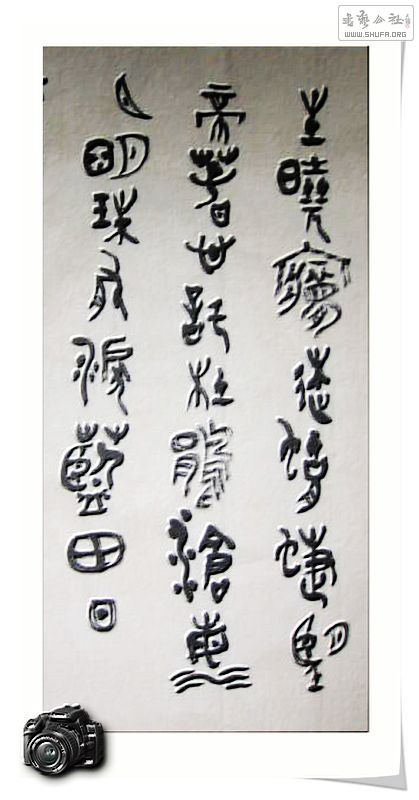 书艺公社
WWW.SHUFA.ORG
生曉夢迷蝴蝶望
帝春心託杜鵑滄海
月明珠有淚藍田日